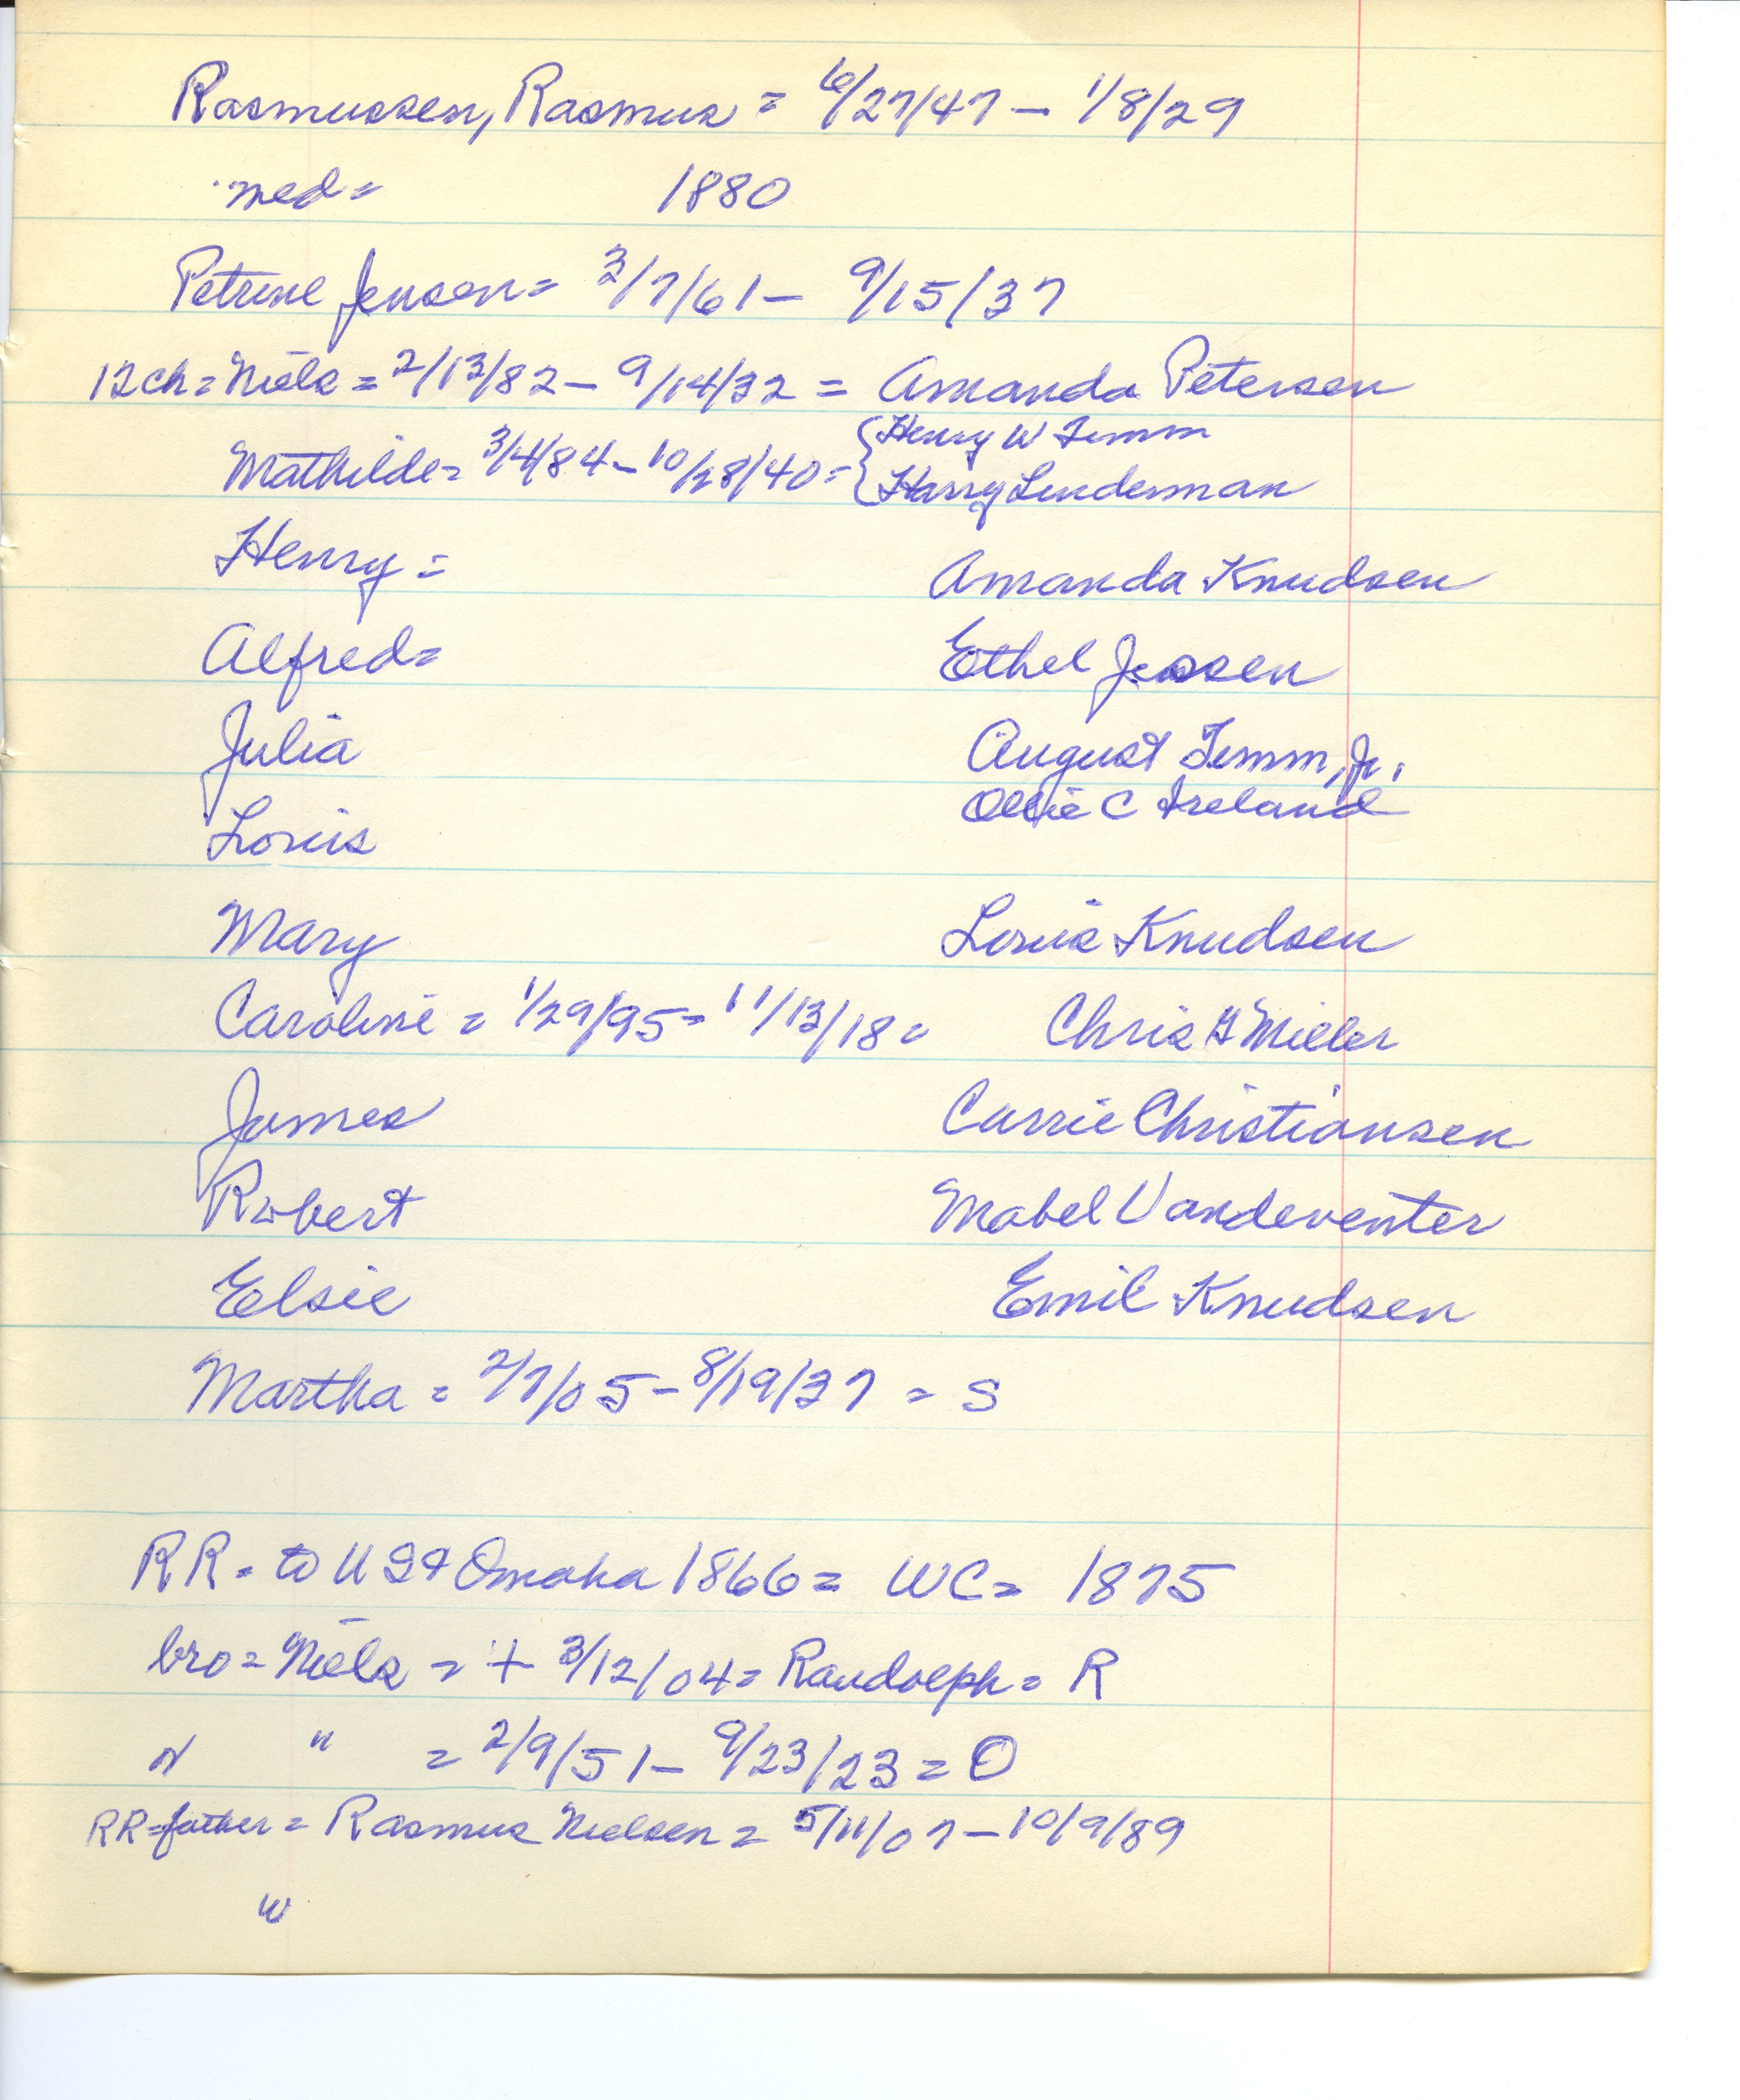 Rasmussen, Rasmus = 6/27/47 — 1/8/29
med = 1880
Petrine Jensen = 3/7/61 — 9/15/37
12 ch = Niels = 2/13/82 — 9/14/32 = Amanda Petersen
Mathilde = 3/4/84 — 10/28/40 = { Henry W Timm
Harry Linderman
Henry = Amanda Knudsen
Alfred = Ethel Jessen
Julia August Timm, Jr.
Louis Ollie C Ireland
Mary Louis Knudsen
Caroline = 1/29/95 = 11/13/18 = Chris G Miller
James Carrie Christiansen
Robert Mabel Vandeventer
Elsie Emil Knudsen
Martha = 2/7/05 — 8/19/37 = S
RR = to US & Omaha 1866 = WC = 1875
bro = Niels = + 3/12/04 = Randolph = R
" " = 2/9/51 — 9/23/23 = O
RR = father = Rasmus Nielsen = 5/11/07 — 10/9/89
w